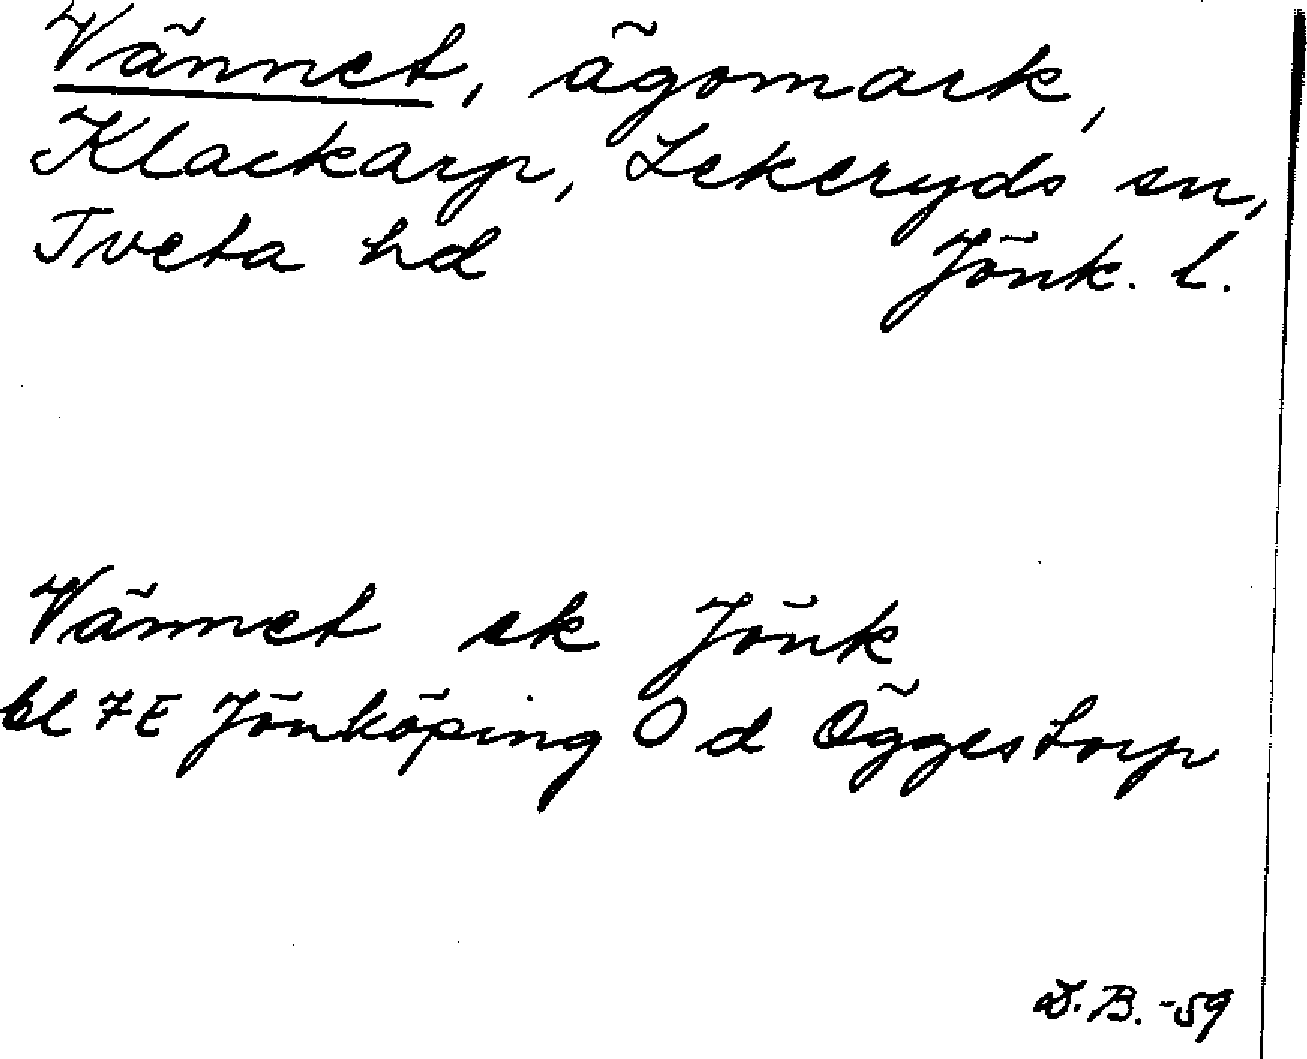 Vännet, ägomark,
Klackarp, Lekeryds sn,
Tveta hd Jönk. l.
Vännet ek Jönk
bl 7E Jönköping 0 d Öggestorp
D.B. -59